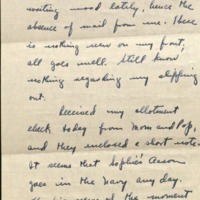 writing mood lately, hence the
absence of mail from me. There
is nothing new on my front,
all goes well. Still know
nothing regarding my shipping
out.
Received my allotment
check today from Mom and Pop,
and they enclosed a short note.
It seems that Sophie's
goes in the Navy any day.
of the moment